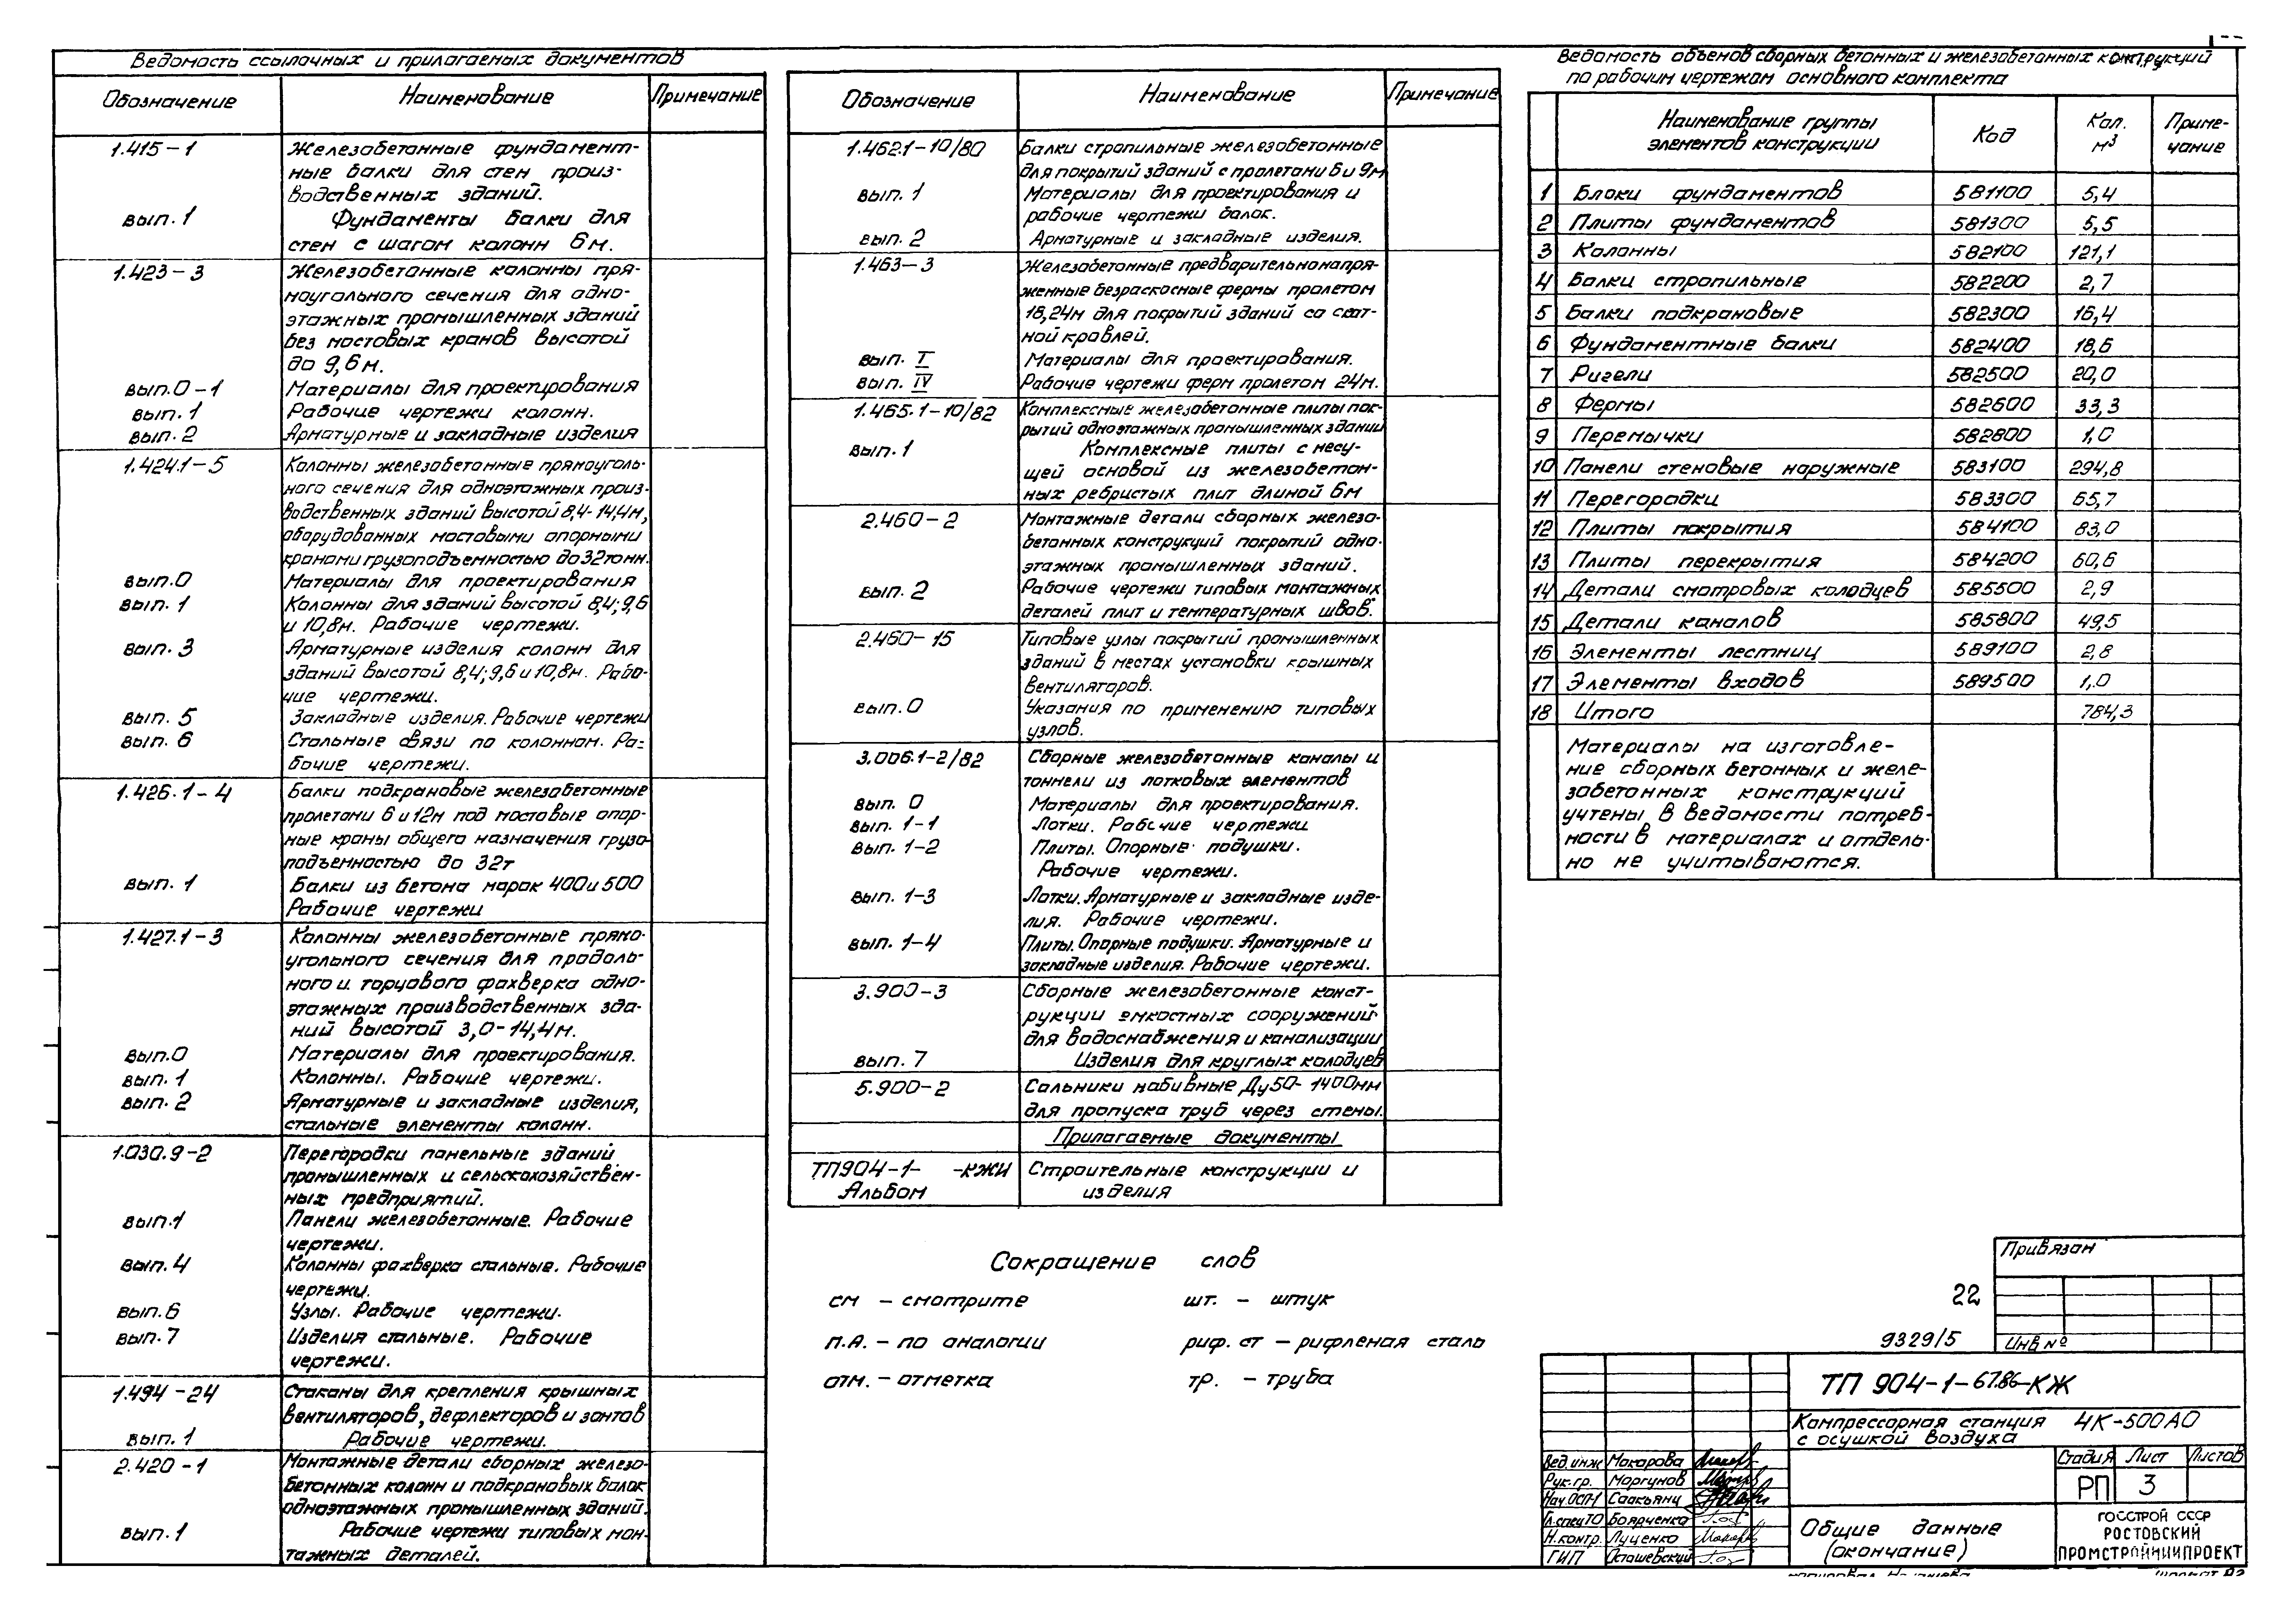 Ведомость ссылочных и прилагаемых документов
Обозначение Наименование Примечание
1.415-1 Железобетонные фундамент-
ные балки для стен произ-
водственных зданий.
вып. 1 Фундаменты балки для
стен с шагом колонн 6м.
1.423-3 Железобетонные колонны пря-
моугольного сечения для одно-
этажных промышленных зданий
без мостовых кранов высотой
до 9,6м.
вып.0-1 Материалы для проектирования
вып. 1 Рабочие чертежи колонн.
вып. 2 Арматурные и закладные изделия
1.424.1-5 Колонны железобетонные прямоуголь-
ного сечения для одноэтажных произ-
водственных зданий высотой 8,4-14,4м,
оборудованных мостовыми опорными
кранами грузоподъемностью до 32тонн.
вып.0 Материалы для проектирования
вып. 1 Колонны для зданий высотой 8,4; 9,6
и 10,8м. Рабочие чертежи.
вып. 3 Арматурные изделия колонн для
зданий высотой 8,4; 9,6 и 10,8м. Рабо-
чие чертежи.
вып. 5 Закладные изделия. Рабочие чертежи
вып. 6 Стальные связи по колоннам. Ра-
бочие чертежи.
1.426.1-4 Балки подкрановые железобетонные
пролетами 6 и 12м под мостовые опор-
ные краны общего назначения грузо-
подъемностью до 32т
вып. 1 Балки из бетона марок 400 и 500
Рабочие чертежи
1.427.1-3 Колонны железобетонные прямо-
угольного сечения для продоль-
ного и торцового фахверка одно-
этажных производственных зда-
ний высотой 3,0-14,4м.
вып.0 Материалы для проектирования.
вып. 1 Колонны. Рабочие чертежи.
вып. 2 Арматурные и закладные изделия,
стальные элементы колонн.
1.030.9-2 Перегородки панельные зданий
промышленных и сельскохозяйствен-
ных предприятий.
вып.1 Панели железобетонные. Рабочие
чертежи.
вып.4 Колонны фахверка стальные. Рабочие
чертежи.
вып.6 Узлы. Рабочие чертежи.
вып.7 Изделия стальные. Рабочие
чертежи.
1.494-24 Стаканы для крепления крышных
вентиляторов, дефлекторов и зонтов
вып. 1 Рабочие чертежи.
2.420-1 Монтажные детали сборных железо-
бетонных колонн и подкрановых балок
одноэтажных промышленных зданий.
вып. 1 Рабочие чертежи типовых мон-
тажных деталей.
Обозначение Наименование Примечание
1.462.1-10/80 Балки стропильные железобетонные
для покрытий зданий с пролетами 6 и 9м
вып. 1 Материалы для проектирования и
рабочие чертежи балок.
вып. 2 Арматурные и закладные изделия.
1.463-3 Железобетонные предварительнонапря-
женные безраскосные фермы пролетом
18,24м для покрытий зданий со скат-
ной кровлей.
вып. I Материалы для проектирования.
вып. IV Рабочие чертежи ферм пролетом 24м.
1.465.1-10/82 Комплексные железобетонные плиты пок-
рытий одноэтажных промышленных зданий
вып. 1 Комплексные плиты с несу-
щей основой из железобетон-
ных ребристых плит длиной 6м
2.460-2 Монтажные детали сборных железо-
бетонных конструкций покрытий одно-
этажных промышленных зданий.
вып. 2 Рабочие чертежи типовых монтажных
деталей плит и температурных швов.
2.460-15 Типовые узлы покрытий промышленных
зданий в местах установки крышных
вентиляторов.
вып.0 Указания по применению типовых
узлов.
3.006.1-2/82 Сборные железобетонные каналы и
тоннели из лотковых элементов
вып. 0 Материалы для проектирования.
вып. 1-1 Лотки. Рабочие чертежи
вып. 1-2 Плиты. Опорные подушки.
Рабочие чертежи.
вып. 1-3 Лотки. Арматурные и закладные изде-
лия. Рабочие чертежи.
вып. 1-4 Плиты. Опорные подушки. Арматурные и
закладные изделия. Рабочие чертежи.
3.900-3 Сборные железобетонные конст-
рукции емкостных сооружений
для водоснабжения и канализации
вып. 7 Изделия для круглых колодцев
5.900-2 Сальники набивные Ду50-1400мм
для пропуска труб через стены.
Прилагаемые документы
ТП904-1- -КЖИ Строительные конструкции и
Альбом изделия
Сокращение слов
см - смотрите шт. - штук
п.а. - по аналогии риф. ст - рифленая сталь
отм. - отметка тр. - труба
Ведомость объемов сборных бетонных и железобетонных конструкций
по рабочим чертежам основного комплекта
Наименование группы элементов конструкции Код Кол. м³ Приме-
чание
1 Блоки фундаментов 581100 5,4
2 Плиты фундаментов 581300 5,5
3 Колонны 582100 121,1
4 Балки стропильные 582200 2,7
5 Балки подкрановые 582300 16,4
6 Фундаментные балки 582400 18,6
7 Ригели 582500 20,0
8 Фермы 582600 33,3
9 Перемычки 582800 1,0
10 Панели стеновые наружные 583100 294,8
11 Перегородки 583300 65,7
12 Плиты покрытия 584100 83,0
13 Плиты перекрытия 584200 60,6
14 Детали смотровых колодцев 585500 2,9
15 Детали каналов 585800 49,5
16 Элементы лестниц 589100 2,8
17 Элементы входов 589500 1,0
18 Итого 784,3
Материалы на изготовле-
ние сборных бетонных и желе-
зобетонных конструкций
учтены в ведомости потреб-
ности в материалах и отдель-
но не учитываются.
Привязан
22
9329/5 Инв №
ТП 904-1-67.86-КЖ
Компрессорная станция 4К-500АО
с осушкой воздуха
Стадия Лист Листов
РП 3
Вед.инж Макарова
Рук.гр. Моргунов
Нач.ОСП-1 Саакьянц
Гл.спец ТО Боярченко
Н.контр. Луценко
ГИП Осташевский
Общие данные
(окончание)
ГОССТРОЙ СССР
РОСТОВСКИЙ
ПРОМСТРОЙНИИПРОЕКТ